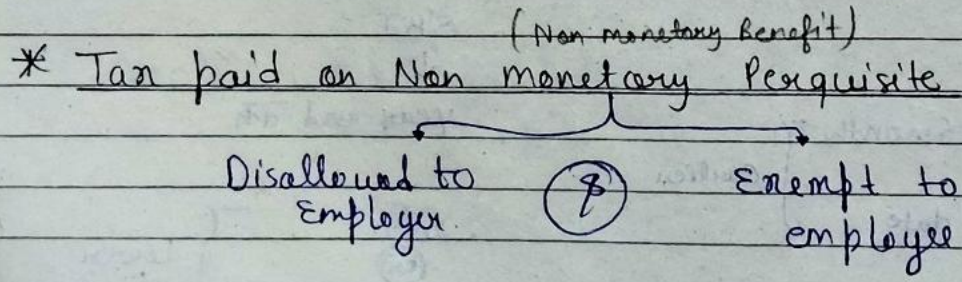 (Non monetary Benefit)
* Tax paid on Non monetary Perquisite
Disallowed to Exempt to
Employer. & employee